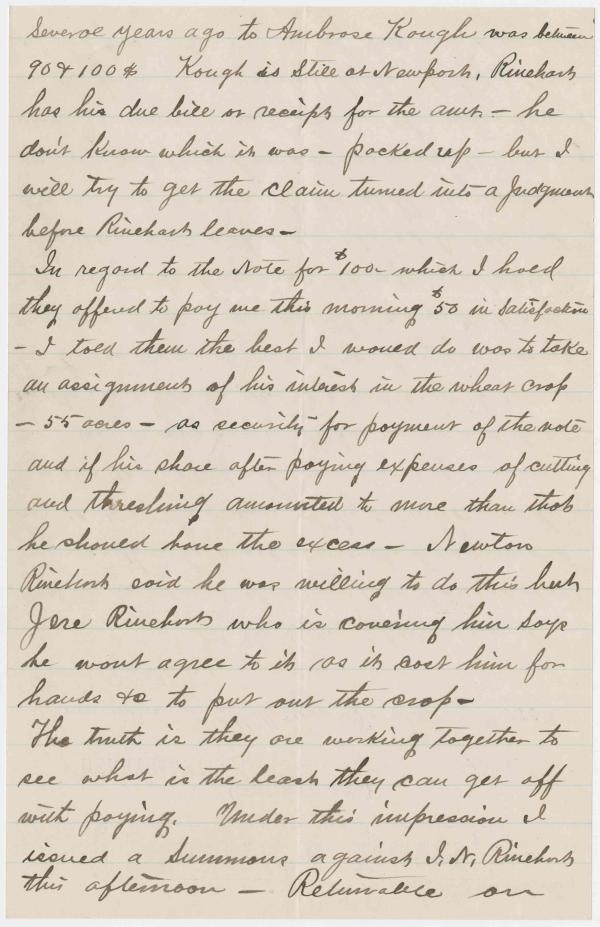 several years ago to Ambrose Kough was between
90 & 100 $ Kough is still at Newport, Rinehart
has his due bill or receipt for the amt. – he
don't know which it was – packed up – but I
will try to get the claim turned into a Judgment
before Rinehart leaves –
In regard to the Note for $100 which I hold
they offered to pay me this morning $50 in satisfaction
– I told them the best I would do was to take
an assignment of his interest in the wheat crop
– 55 acres – as security for payment of the note
and if his share after paying expenses of cutting
and threshing amounted to more than that
he should have the excess – Newton
Rinehart said he was willing to do this but
Jere Rinehart who is covering him says
he wont agree to it as it cost him for
hands &c to put out the crop –
The truth is they are working together to
see what is the least they can get off
with paying. Under this impression I
issued a Summons against I. N. Rinehart
this afternoon – Returnable on